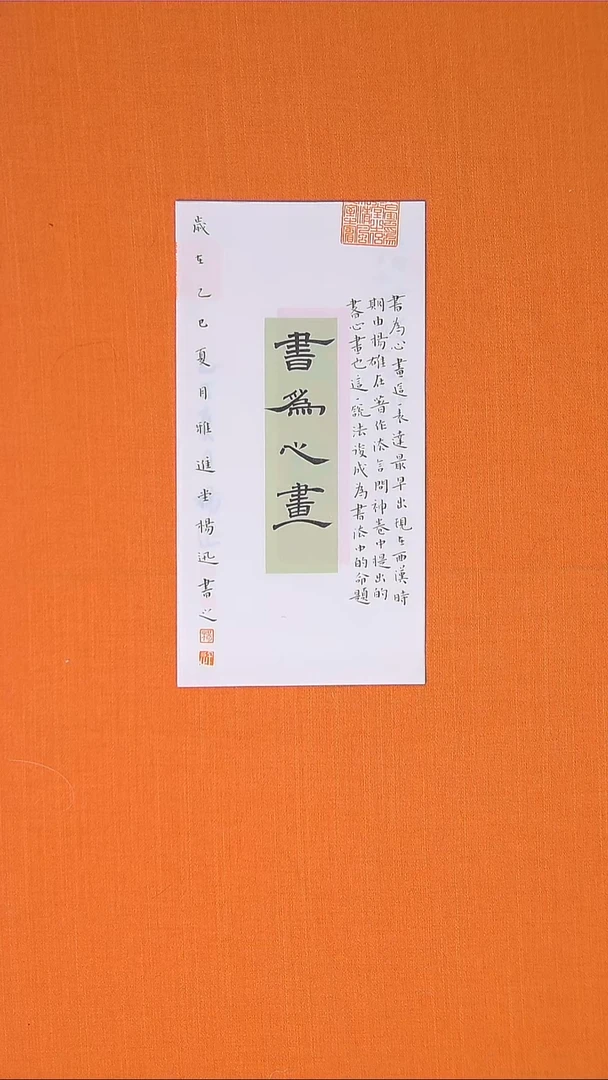 書為心畫這一表達最早出現在西漢時
期由揚雄在著作法言問神卷中提出的
書心畫也這一說法後成為書法中的命題
書爲心畫
歲在乙巳夏月雅進堂楊迅書之